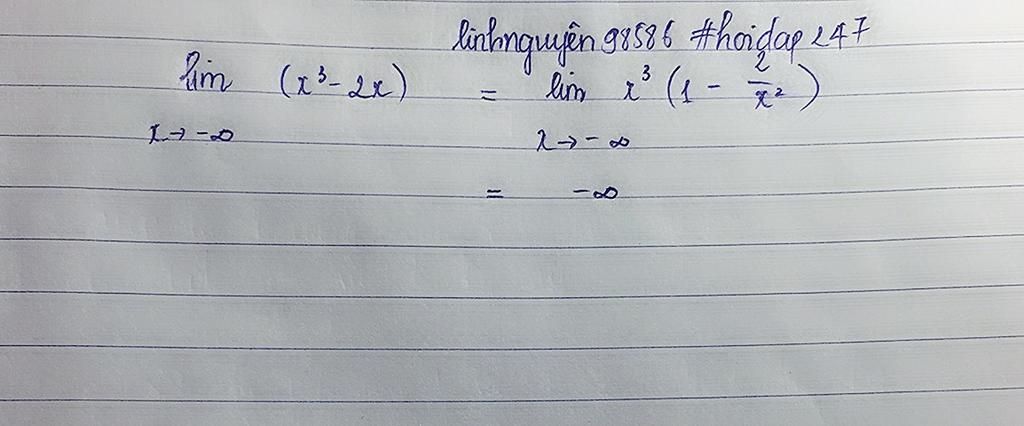 linhnguyên98586 #hoidap247
lim (x³ - 2x) = lim x³ (1 - 2/x²)
x → -∞ x → -∞
= -∞